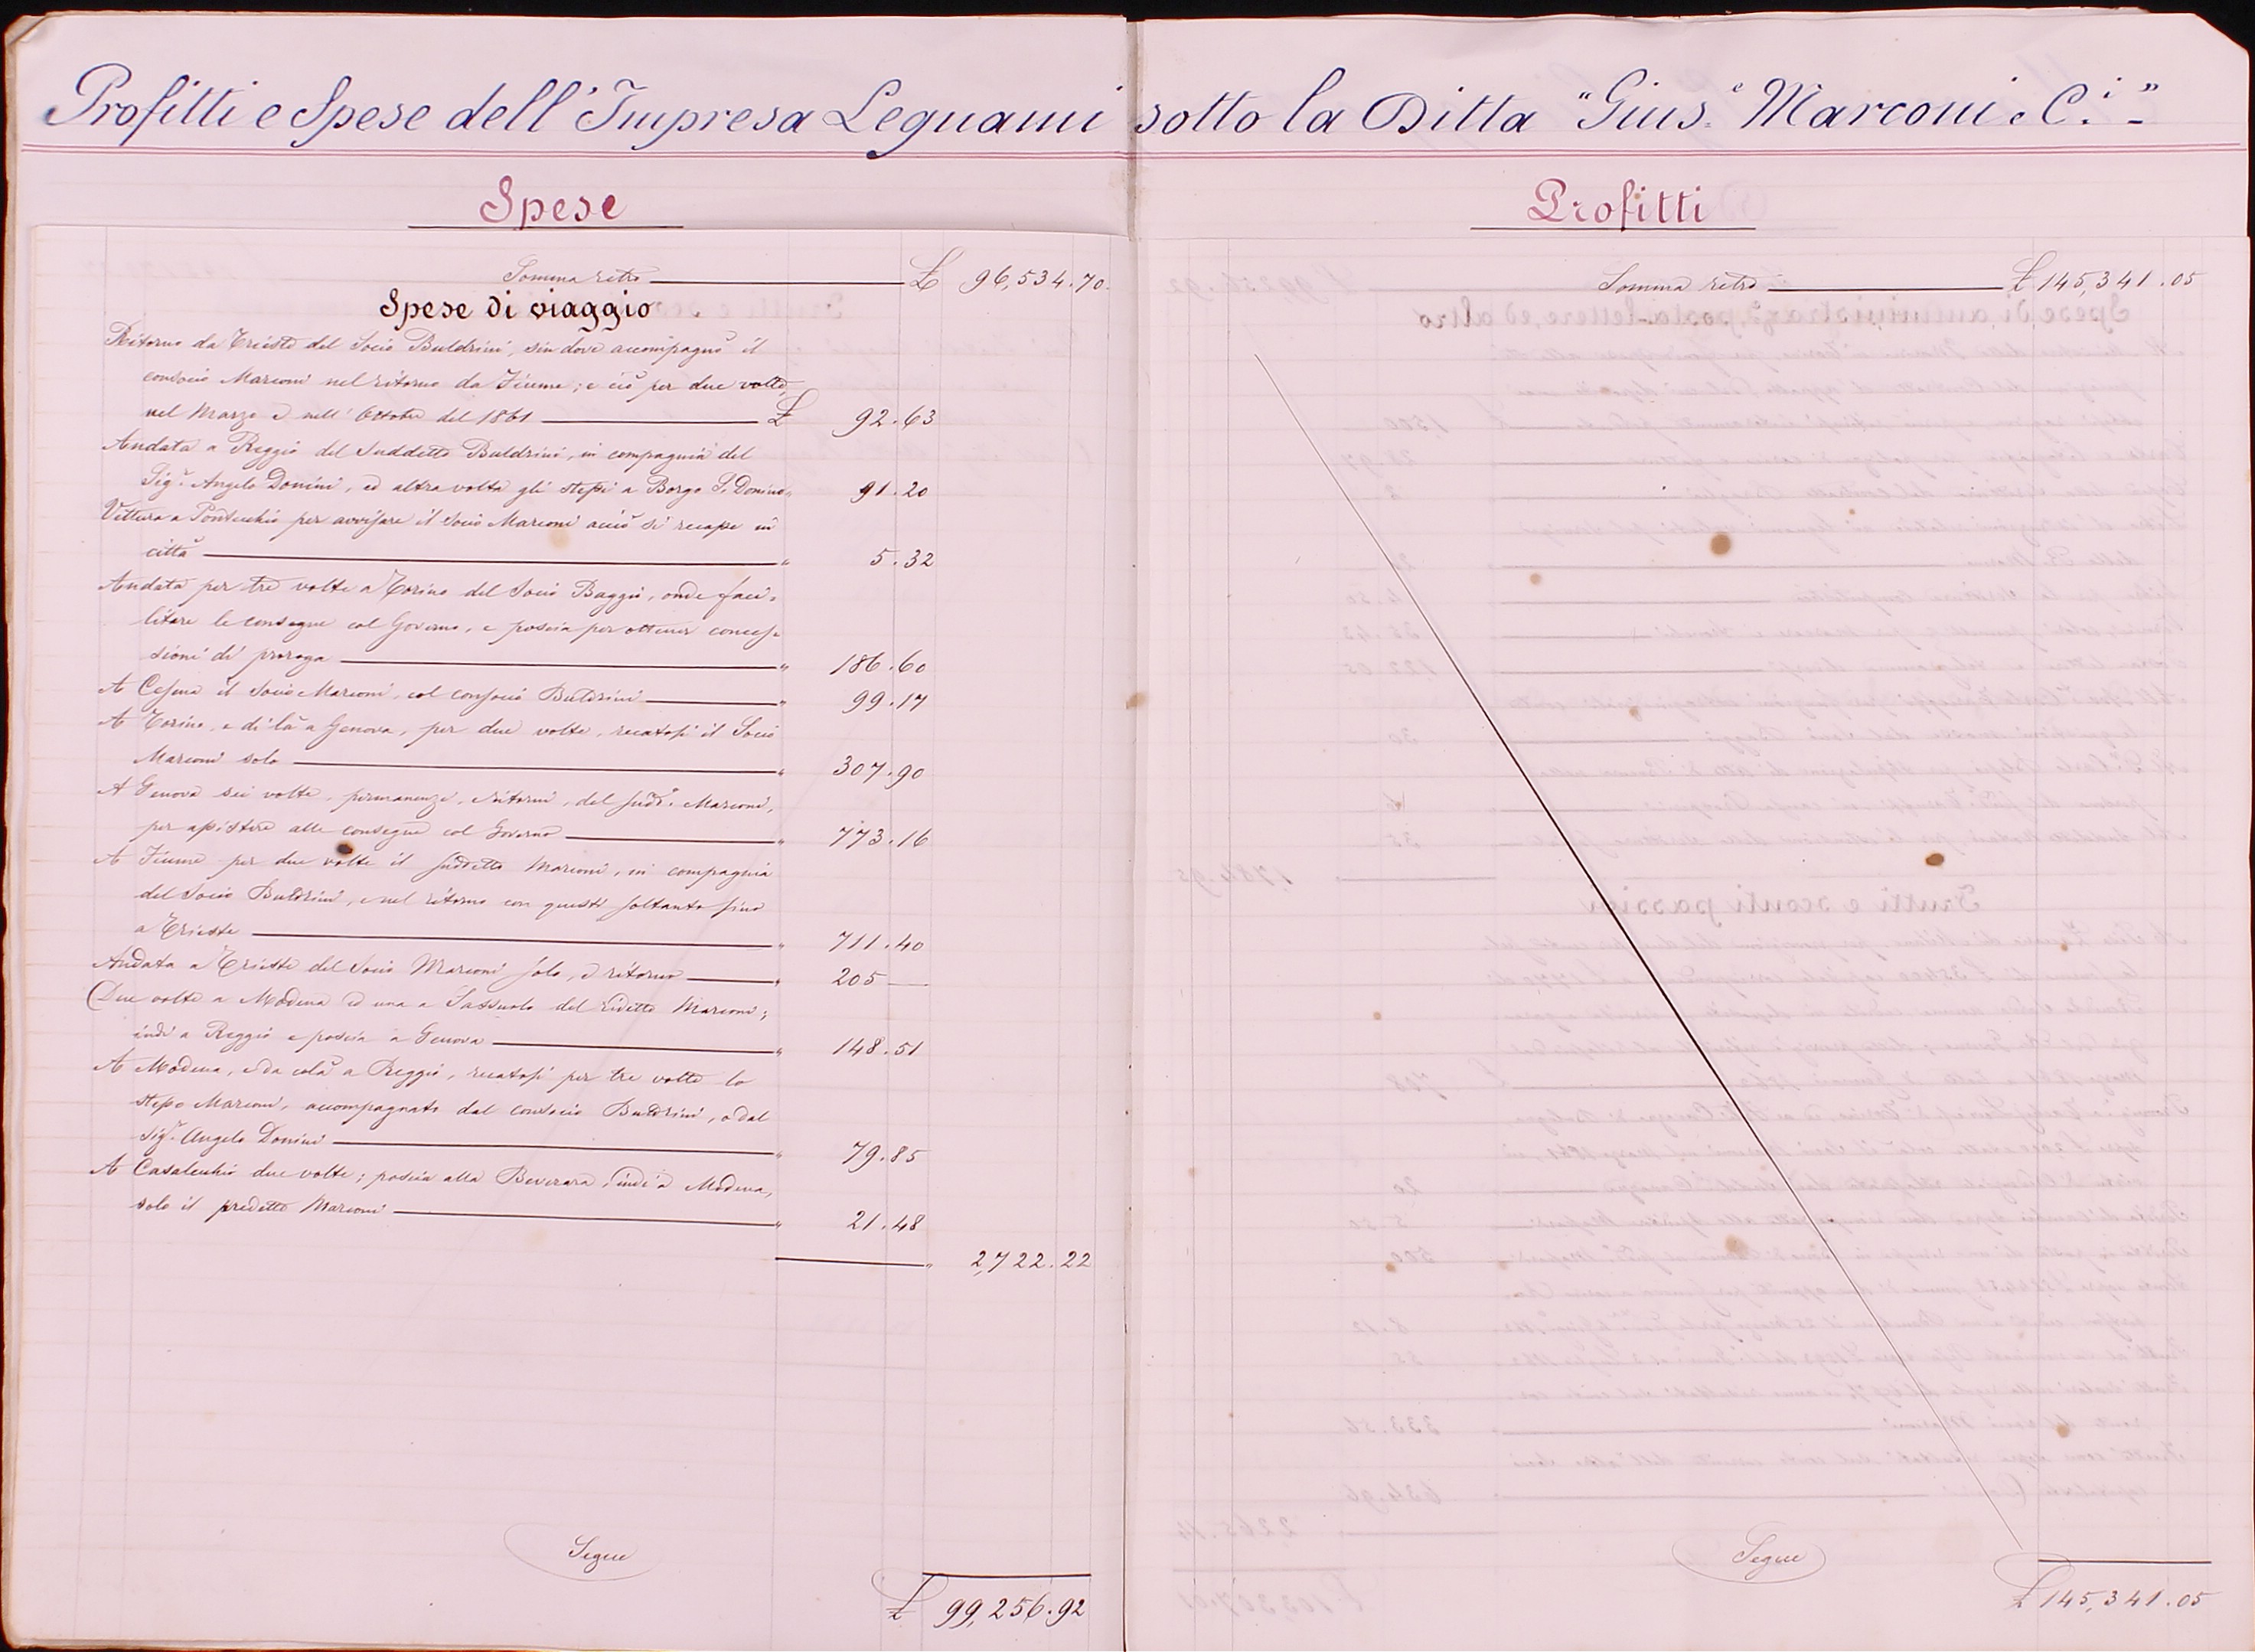 Profitti e Spese dell'Impresa Legnami sotto la Ditta "Gius.e Marconi e C.i"
Spese
Somma retro £ 96,534.70
Spese di viaggio
Ritorno da Trieste del Socio Buldrini, sin dove accompagnò il
consocio Marconi nel ritorno da Fiume; e ciò per due volte,
nel Marzo e nell'Ottobre del 1861 £ 92.63
Andata a Reggio del Suddetto Buldrini, in compagnia del
Sig.r Angelo Donini, ed altra volta gli stessi a Borgo S. Donino " 91.20
Vettura a Pontecchio per avvisare il Socio Marconi acciò si recasse in
città " 5.32
Andata per tre volte a Torino del Socio Baggio, onde faci=
litare le consegne col Governo, e poscia per ottener conces=
sioni di proroga " 186.60
A Cesena il Socio Marconi, col consocio Buldrini " 99.17
A Torino, e di là a Genova, per due volte, recatosi il Socio
Marconi solo " 307.90
A Genova sei volte, permanenze, e ritorni, del sudd.o Marconi,
per assistere alle consegne col Governo " 773.16
A Fiume per due volte il suddetto Marconi, in compagnia
del Socio Buldrini, e nel ritorno con questi soltanto sino
a Trieste " 711.40
Andata a Trieste del Socio Marconi solo, e ritorno " 205 —
Due volte a Modena ed una a Sassuolo del ridetto Marconi;
indi a Reggio e poscia a Genova " 148.51
A Modena, e da colà a Reggio, recatosi per tre volte lo
stesso Marconi, accompagnato dal consocio Buldrini, o dal
Sig.r Angelo Donini " 79.85
A Casalecchio due volte; poscia alla Beverara, indi a Modena,
solo il predetto Marconi " 21.48
" 2,722.22
Segue
£ 99,256.92
Profitti
Somma retro £ 145,341.05
Segue
£ 145,341.05